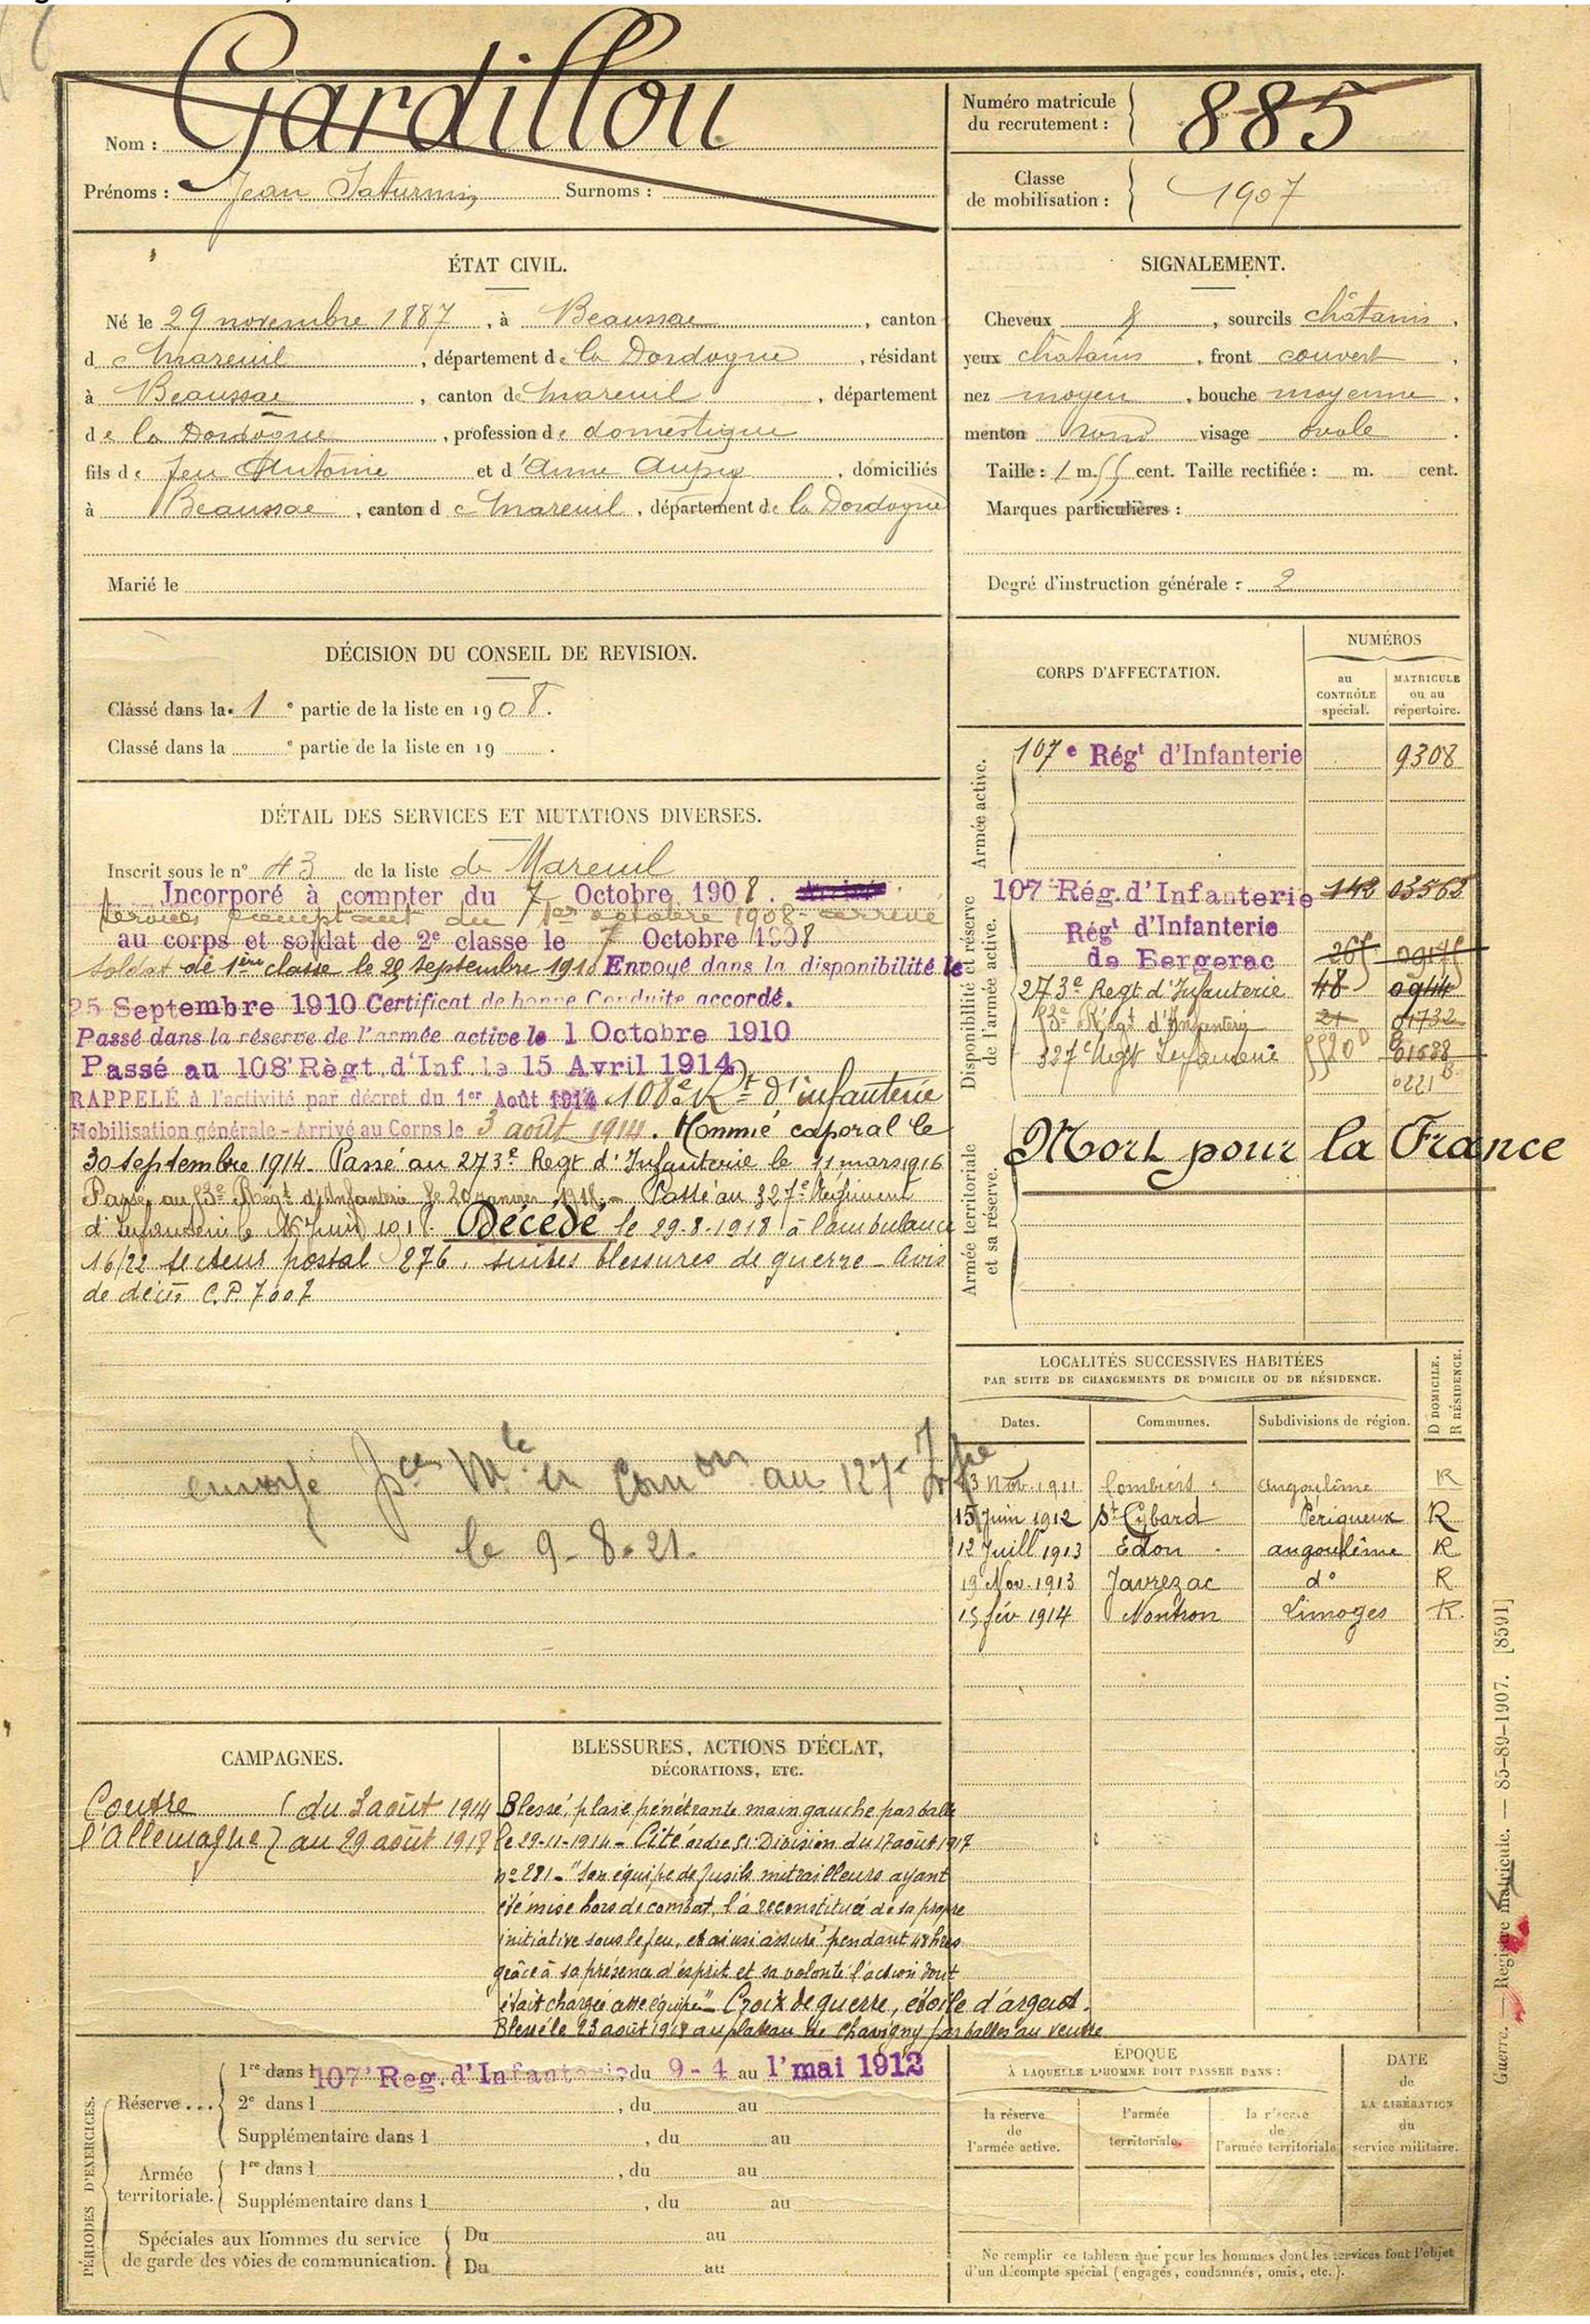 Gardillou
Nom :
Prénoms : Jean Saturnin Surnoms :
Numéro matricule
du recrutement :
885
Classe
de mobilisation :
1907
ÉTAT CIVIL.
Né le 29 novembre 1887, à Beaussac, canton
de Mareuil, département de la Dordogne, résidant
à Beaussac, canton de Mareuil, département
de la Dordogne, profession de domestique
fils de feu Antoine et d'Anne, domiciliés
à Beaussac, canton de Mareuil, département de la Dordogne
Marié le
SIGNALEMENT.
Cheveux, sourcils châtains,
yeux chatains, front couvert,
nez moyen, bouche moyenne,
menton rond visage ovale.
Taille : 1 m. 55 cent. Taille rectifiée : m. cent.
Marques particulières :
Degré d'instruction générale : 2
DÉCISION DU CONSEIL DE REVISION.
Classé dans la 1e partie de la liste en 1908.
Classé dans la e partie de la liste en 19 .
DÉTAIL DES SERVICES ET MUTATIONS DIVERSES.
Inscrit sous le n° 43 de la liste de Mareuil
Incorporé à compter du 7 Octobre 1908.
services comptant du 1er octobre 1908 - arrivé
au corps et soldat de 2e classe le 7 Octobre 1908
soldat de 1ère classe le 29 septembre 1910 Envoyé dans la disponibilité le
25 Septembre 1910 Certificat de bonne Conduite accordé.
Passé dans la réserve de l'armée active le 1 Octobre 1910
Passé au 108e Règt. d'Inf. le 15 Avril 1914
RAPPELÉ à l'activité par décret du 1er Août 1914 108e Rt d'infanterie
Mobilisation générale - Arrivé au Corps le 3 août 1914. Nommé caporal le
30 septembre 1914. Passé au 273e Regt d'Infanterie le 11 mars 1916
Passé au Regt d'Infanterie le 20 janvier 1918. - Passé au 327e Régiment
d'Infanterie le 16 Juin 1918. Décédé le 29-8-1918 à l'ambulance
16/22 secteur postal 276, suites blessures de guerre - Avis
de décès C.P. 7007
envoyé pces Mle en Comon au 127e Inf
le 9-8-21.
CORPS D'AFFECTATION.
NUMÉROS
au
CONTRÔLE
spécial.
MATRICULE
ou au
répertoire.
Armée active.
107e Régt d'Infanterie 9308
Disponibilité et réserve
de l'armée active.
107e Rég. d'Infanterie 142 03562
Régt d'Infanterie
de Bergerac
273e Regt d'Infanterie 48
Régt d'Infanterie 21 01732
327e Regt Infanterie 01688
Armée territoriale
et sa réserve.
Mort pour la France
LOCALITÉS SUCCESSIVES HABITÉES
PAR SUITE DE CHANGEMENTS DE DOMICILE OU DE RÉSIDENCE.
D DOMICILE.
R RÉSIDENCE.
Dates. Communes. Subdivisions de région.
13 Nov. 1911 Combiers Angoulême R
15 Juin 1912 St Cybard Périgueux R
12 Juill 1913 Edon angoulême R
19 Nov. 1913 Javrezac do R
15 fév 1914 Nontron Limoges R.
CAMPAGNES.
Contre l'Allemagne
du 3 août 1914
au 29 août 1918
BLESSURES, ACTIONS D'ÉCLAT,
DÉCORATIONS, ETC.
Blessé, plaie pénétrante main gauche par balle
le 29-11-1914 - Cité ordre Division du 17 août 1917
n° 281 - "Son équipe de fusils mitrailleurs ayant
été mise hors de combat, l'a reconstituée de sa propre
initiative sous le feu, et ainsi assuré pendant 48 hres
grâce à sa présence d'esprit et sa volonté l'action dont
était chargée cette équipe" Croix de guerre, étoile d'argent.
Blessé le 23 août 1918 au plateau de Chavigny par balles au ventre
PÉRIODES D'EXERCICES.
Réserve... 1re dans l 107e Reg. d'Infanterie, du 9-4 au 1er mai 1912
2e dans l , du au
Supplémentaire dans l , du au
Armée
territoriale. 1re dans l , du au
Supplémentaire dans l , du au
Spéciales aux hommes du service
de garde des voies de communication. Du au
Du au
ÉPOQUE
À LAQUELLE L'HOMME DOIT PASSER DANS :
la réserve
de
l'armée active.
l'armée
territoriale.
la réserve
de
l'armée territoriale
DATE
de
LA LIBÉRATION
du
service militaire.
Ne remplir ce tableau que pour les hommes dont les services font l'objet
d'un décompte spécial (engagés, condamnés, omis, etc.).
Guerre. — Registre matricule. — 85-89-1907. [8591]